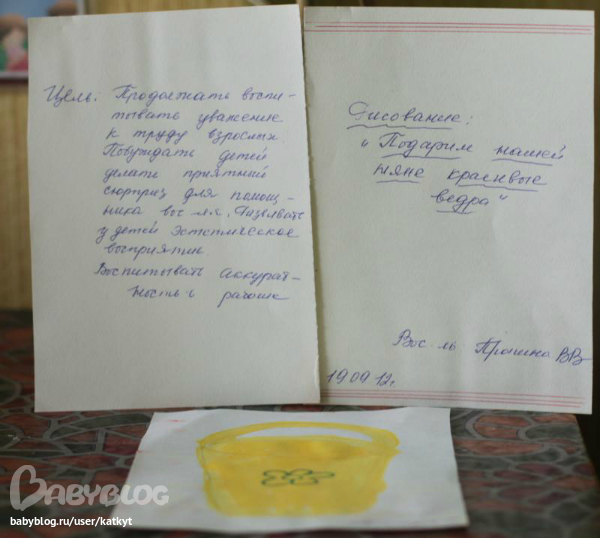 Цель: Продолжать воспи-
тывать уважение
к труду взрослых
Побуждать детей
делать приятный
сюрприз для помощ-
ника вос-ля. Вызывать
у детей эстетическое
восприятие
Воспитывать аккурат-
ность в
Рисование:
"Подарим нашей
няне красивые
ведра"
Вос-ль ВВ
19.09.12г.
BABYBLOG
babyblog.ru/user/katkyt